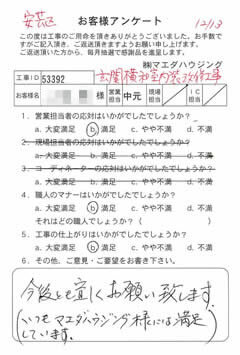 安芸区
お客様アンケート
12/13
この度は工事のご用命を頂きありがとうございました。お手数で
すがご記入頂き、ご返送頂きますようお願い申し上げます。
ご返送頂いた方から、毎月抽選で感謝品を進呈します。
㈱マエダハウジング
工事ID 53392 玄関横和室内装改修工事
お客様名 様 営業担当 中元 現場担当 / IC担当 /
1. 営業担当者の応対はいかがでしたでしょうか?
a. 大変満足 b. 満足 c. やや不満 d. 不満
2. 現場担当者の応対はいかがでしたでしょうか?
a. 大変満足 b. 満足 c. やや不満 d. 不満
3. コーディネーターの応対はいかがでしたでしょうか?
a. 大変満足 b. 満足 c. やや不満 d. 不満
4. 職人のマナーはいかがでしたでしょうか?
a. 大変満足 b. 満足 c. やや不満 d. 不満
それはどの職人でしょうか?( )
5. 工事の仕上がりはいかがでしたでしょうか?
a. 大変満足 b. 満足 c. やや不満 d. 不満
6. その他、ご意見・ご要望をお書き下さい。
今後とも宜しくお願い致します。
(いつもマエダハウジング様には満足
しています。)